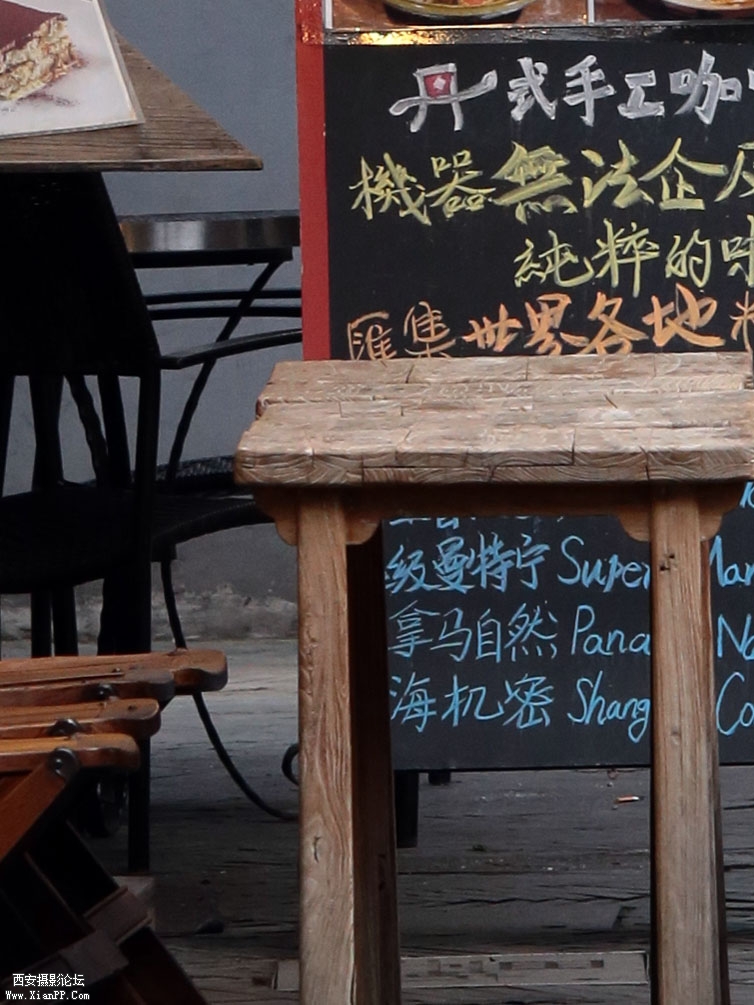 式手工咖
機器無法企及
純粹的味
匯集世界各地
级曼特宁 Super Man
拿马自然 Pana Na
海机密 Shang Co
西安摄影论坛
www.XianPP.Com